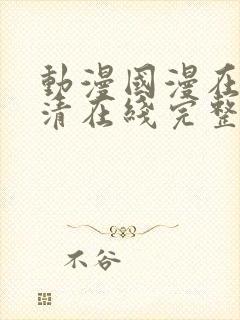 動漫國漫在
清在綫完整
不谷